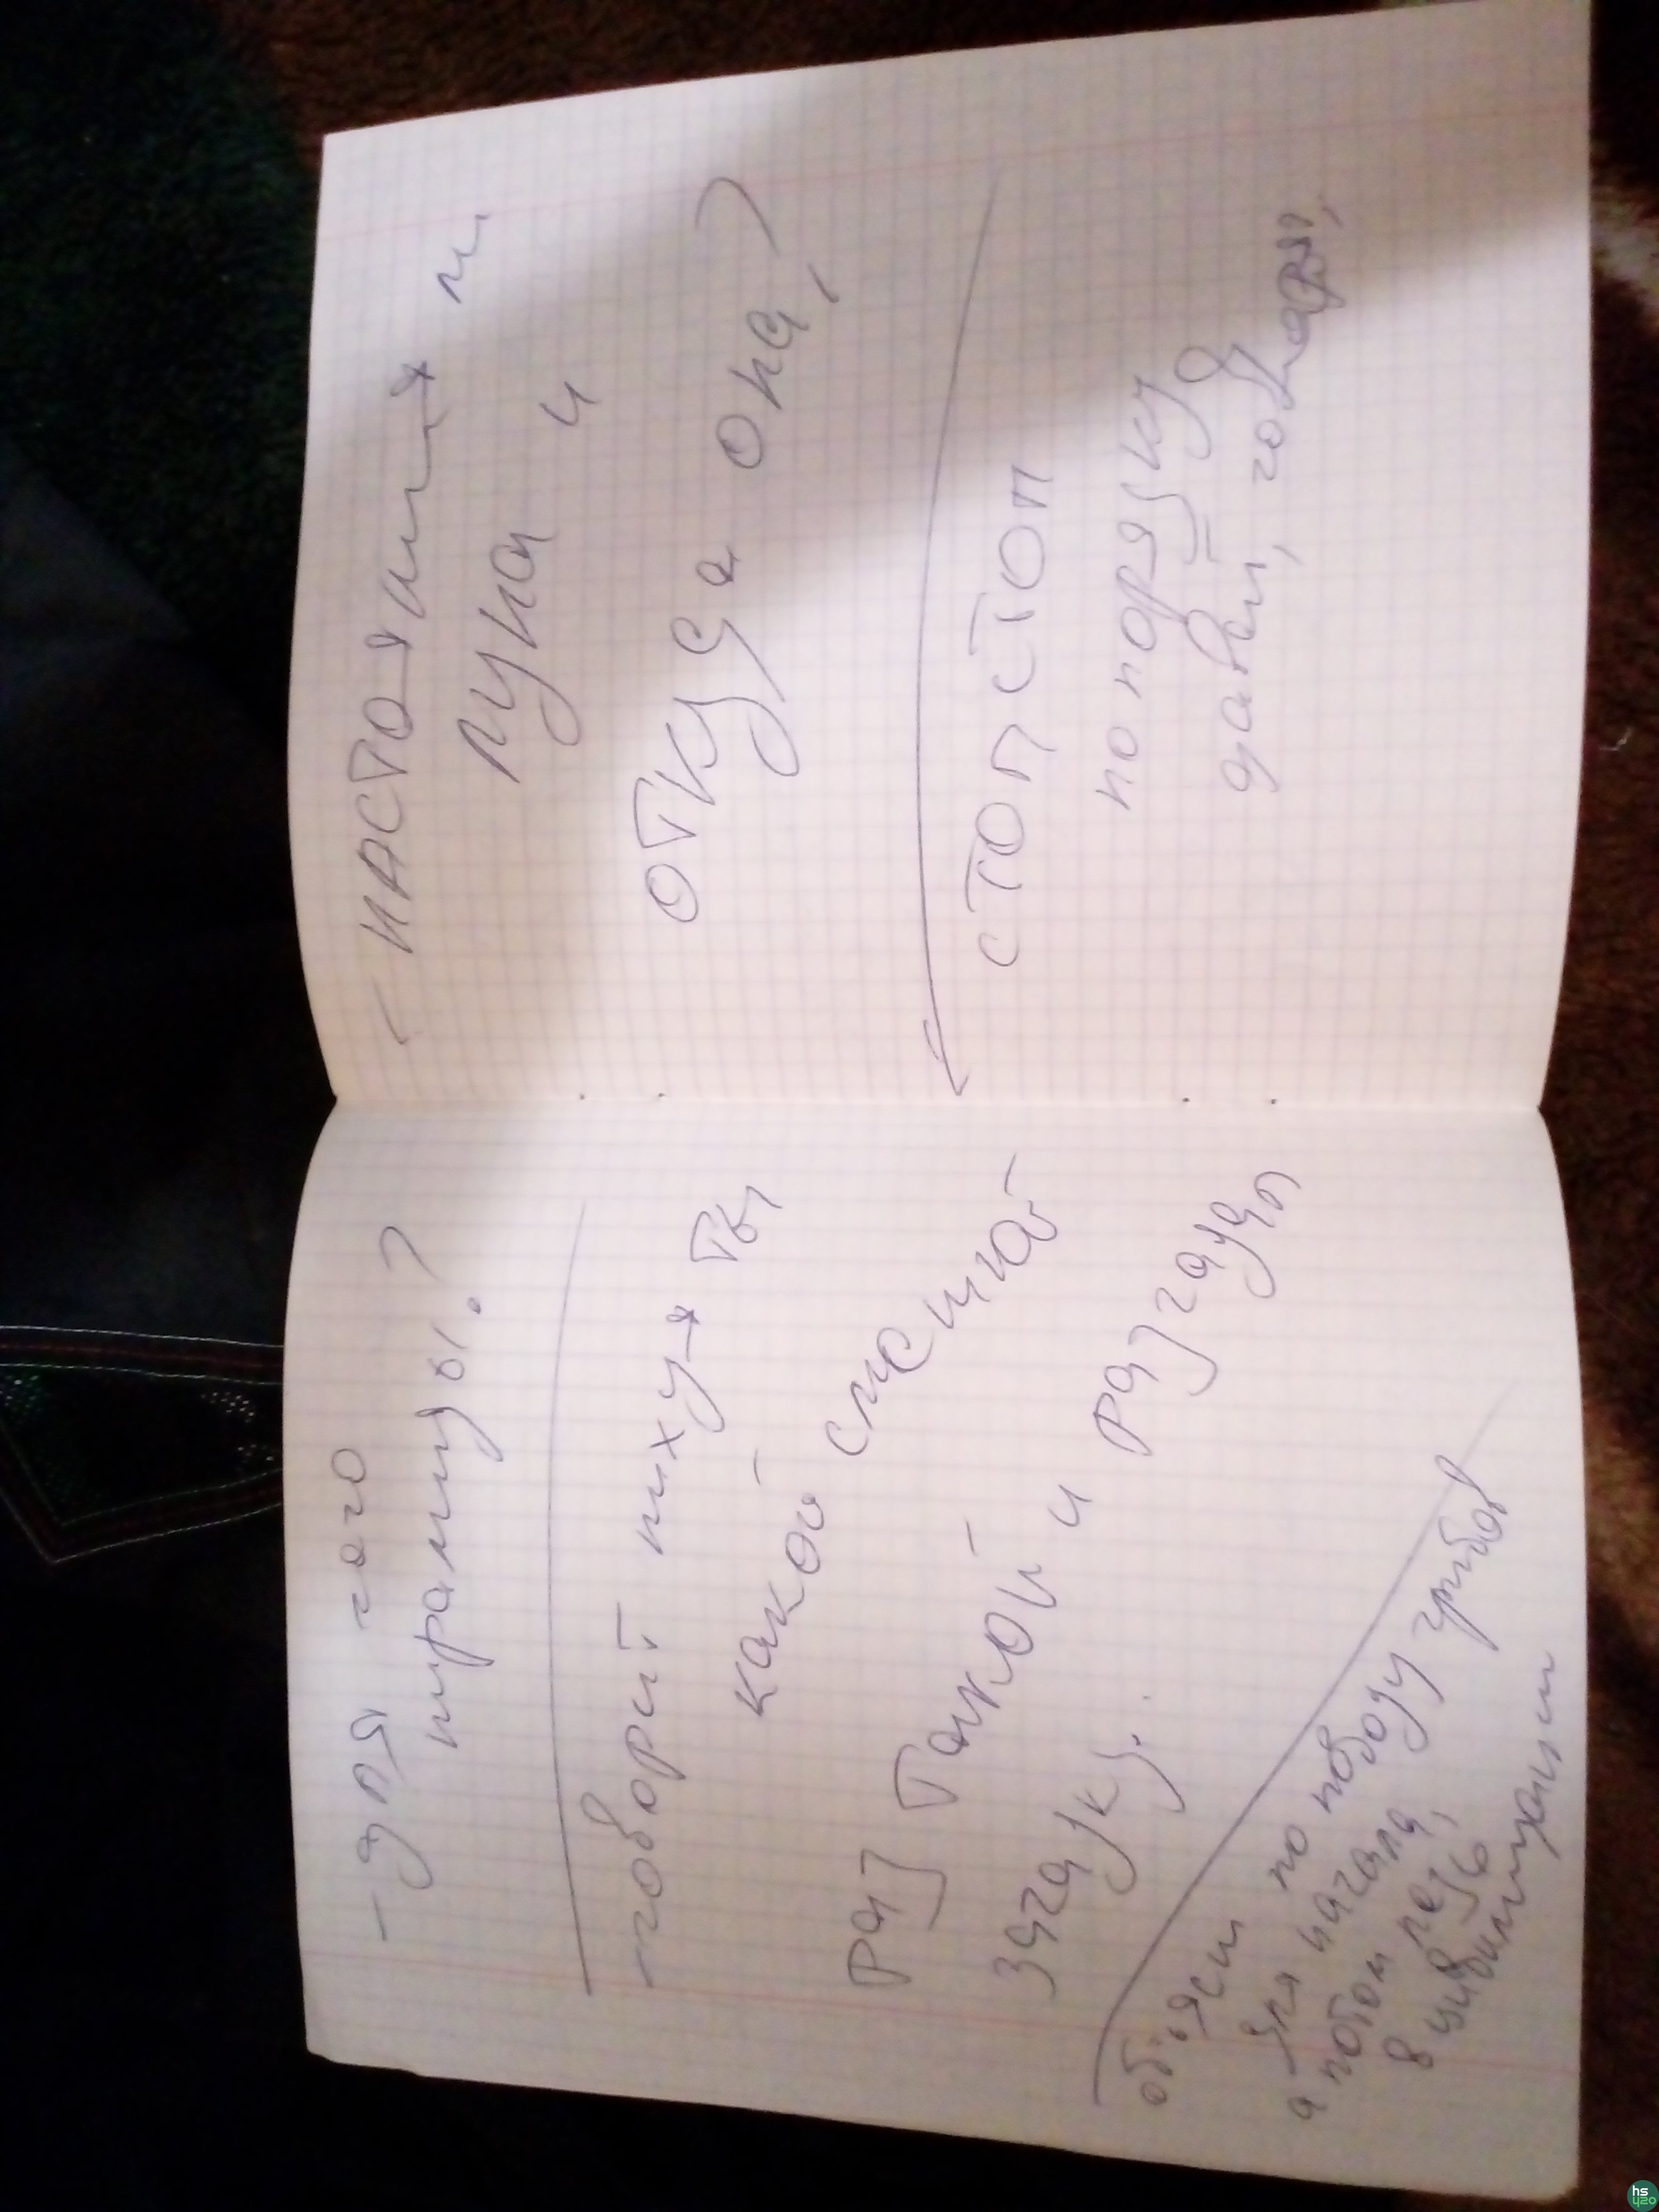 - для чего
пирамиды?
- говорит тихуя ты
какой смешной
раз такой и разгадал
загадку.
объясни по поводу грибов
для начала,
а потом лезь
в цивилизации
- настоящая ли
луна и
откуда она?
стоп стоп
по порядку
давай, говнядя,
hs
420